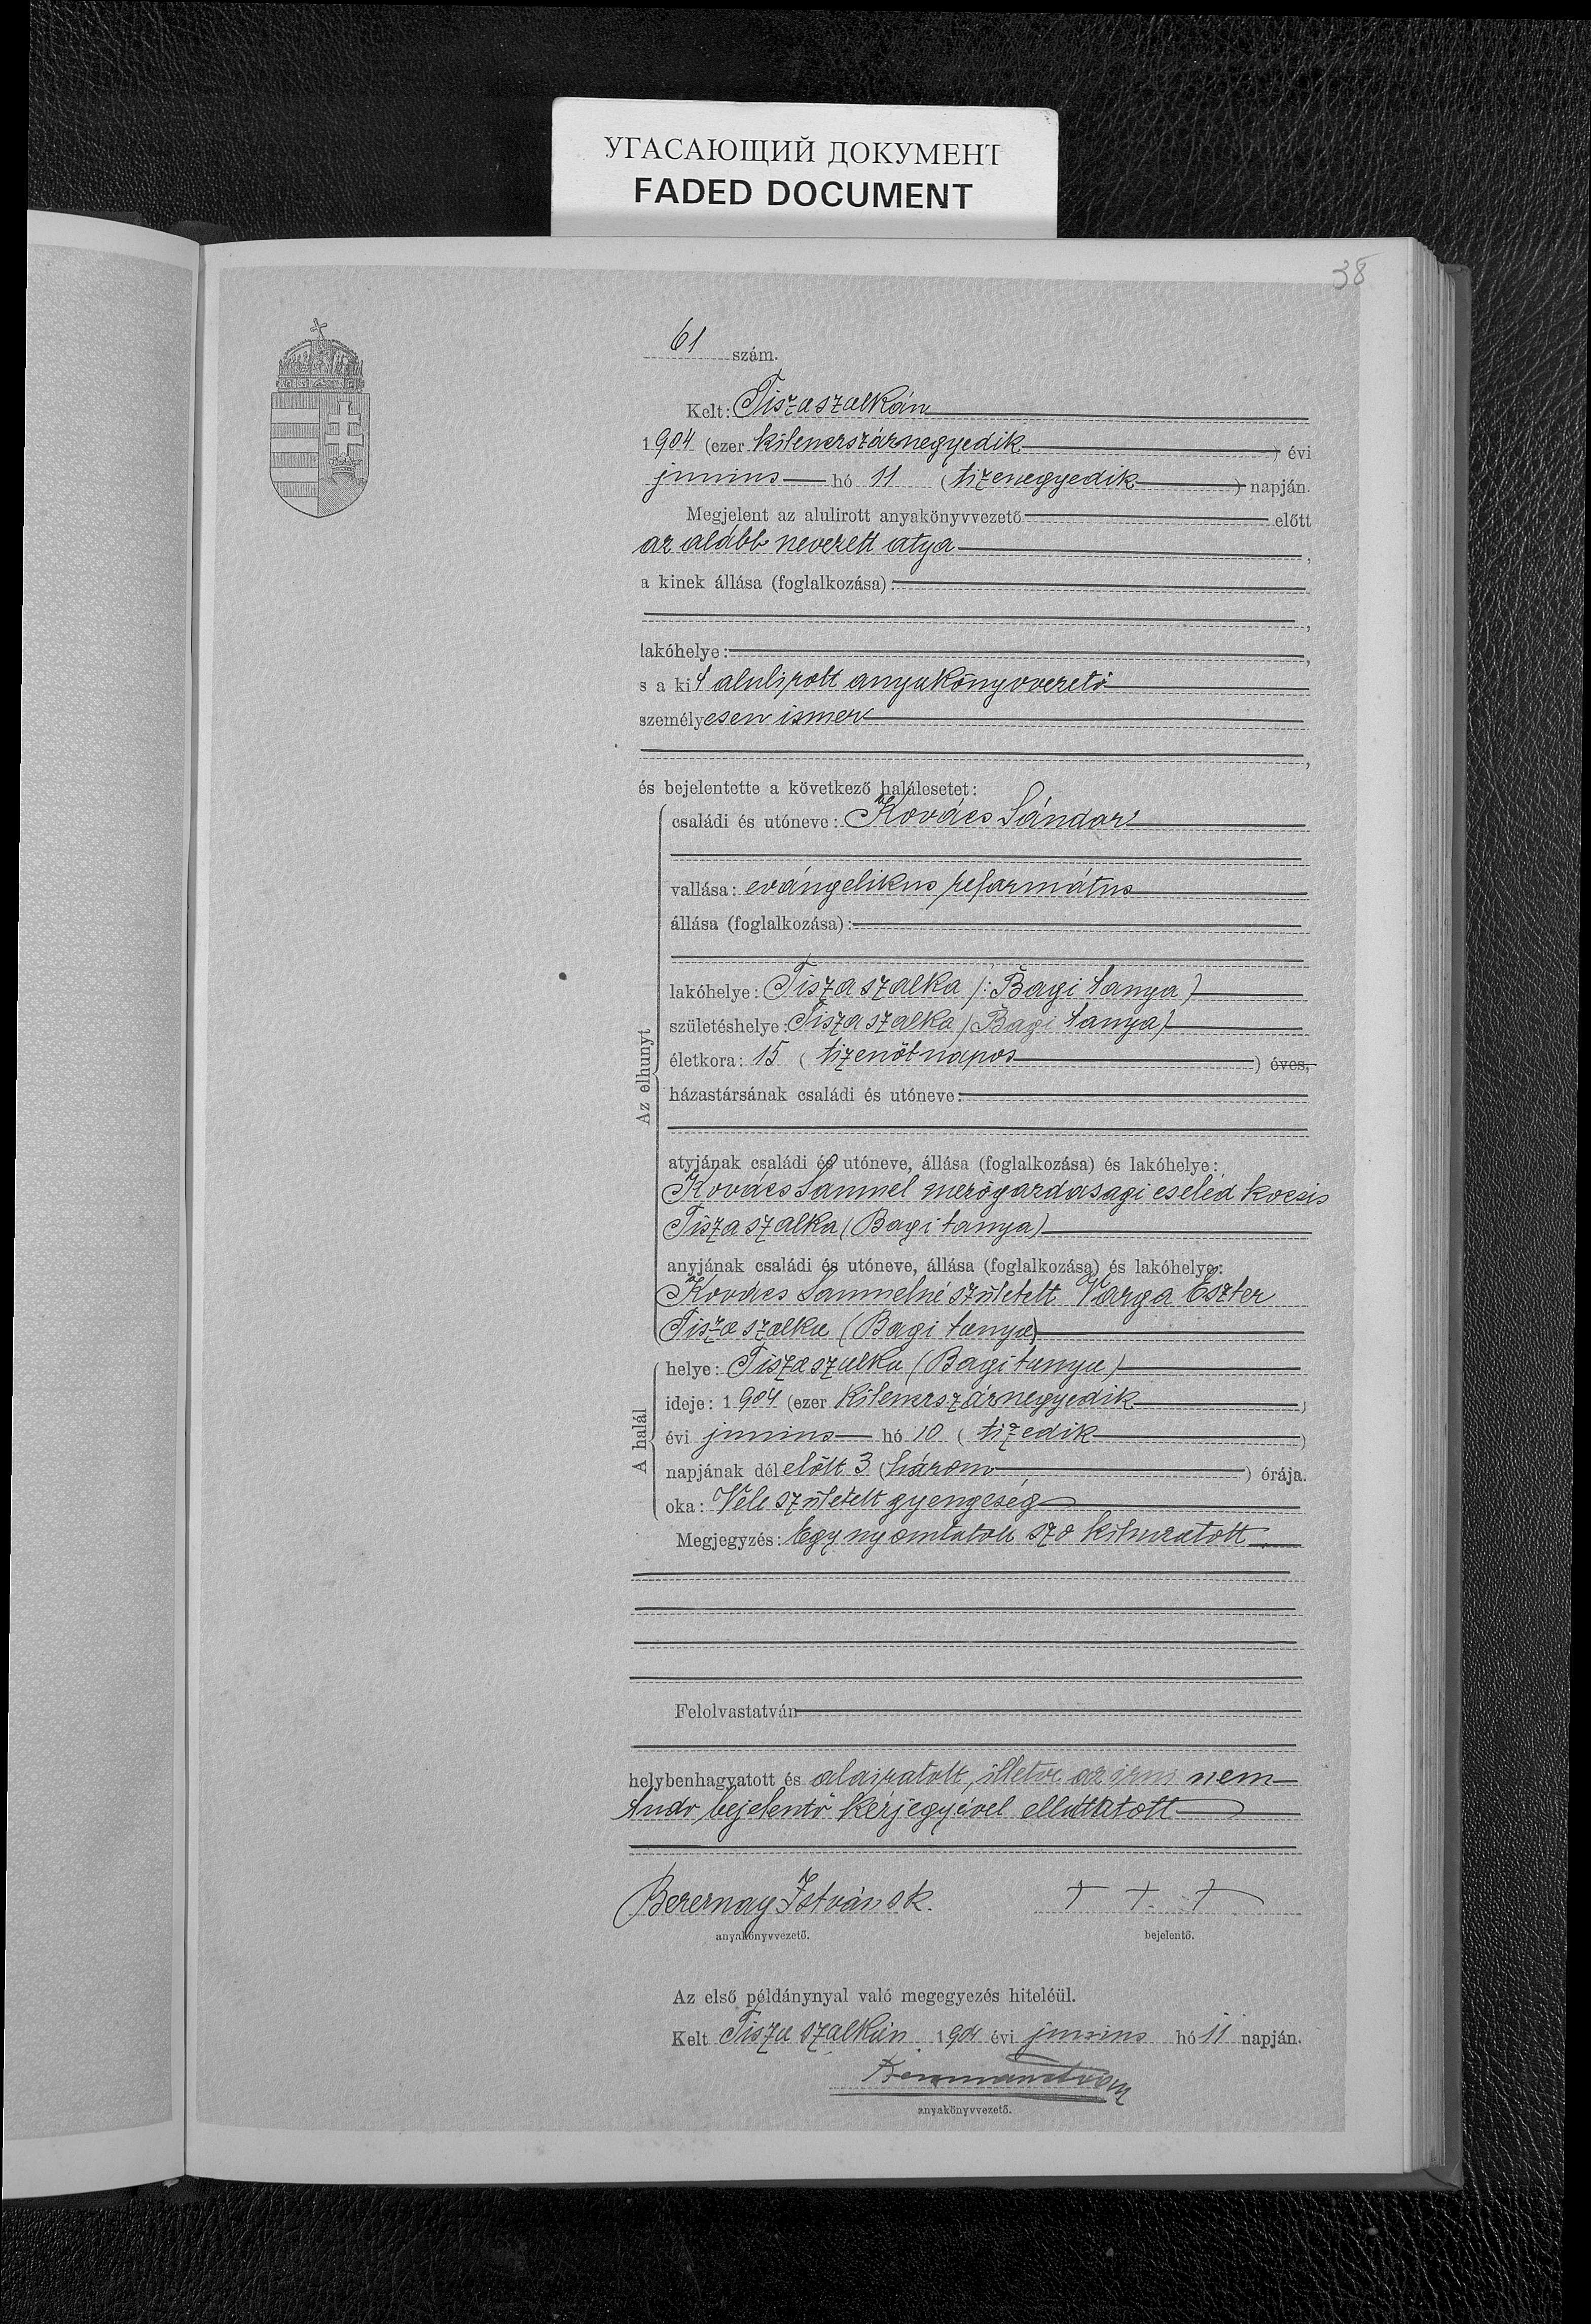 УГАСАЮЩИЙ ДОКУМЕНТ
FADED DOCUMENT
38
61 szám.
Kelt: Tiszaszalkán
1904 (ezer kilenczszáznegyedik) évi
junius hó 11 (tizenegyedik) napján.
Megjelent az alulirott anyakönyvvezető előtt
az alább nevezett atya,
a kinek állása (foglalkozása):
,
lakóhelye:,
s a kit alulirott anyakönyvvezető
személyesen ismer
,
és bejelentette a következő halálesetet:
Az elhunyt
családi és utóneve: Kovács Sándor
vallása: evángelikus református
állása (foglalkozása):
lakóhelye: Tiszaszalka (: Bagi tanya)
születéshelye: Tiszaszalka (Bagi tanya)
életkora: 15 (tizenöt napos) éves,
házastársának családi és utóneve:
atyjának családi és utóneve, állása (foglalkozása) és lakóhelye:
Kovács Samuel mezőgazdasagi cseléd kocsis
Tiszaszalka (Bagi tanya)
anyjának családi és utóneve, állása (foglalkozása) és lakóhelye:
Kovács Samuelné született Varga Eszter
Tiszaszalka (Bagi tanya)
A halál
helye: Tiszaszalka (Bagi tanya)
ideje: 1904 (ezer kilenczszáznegyedik
évi junius hó 10 (tizedik)
napjának délelőtt 3 (három) órája.
oka: Vele született gyengeség
Megjegyzés: Egy nyomtatott szo kihuzatott
Felolvastatván
helybenhagyatott és alairatott, illetve az irni nem
tudo bejelentő kézjegyével elláttatott
Bezernay István s k. + + +
anyakönyvvezető. bejelentő.
Az első példánynyal való megegyezés hiteléül.
Kelt Tiszaszalkán 1904 évi junius hó 11 napján.
anyakönyvvezető.